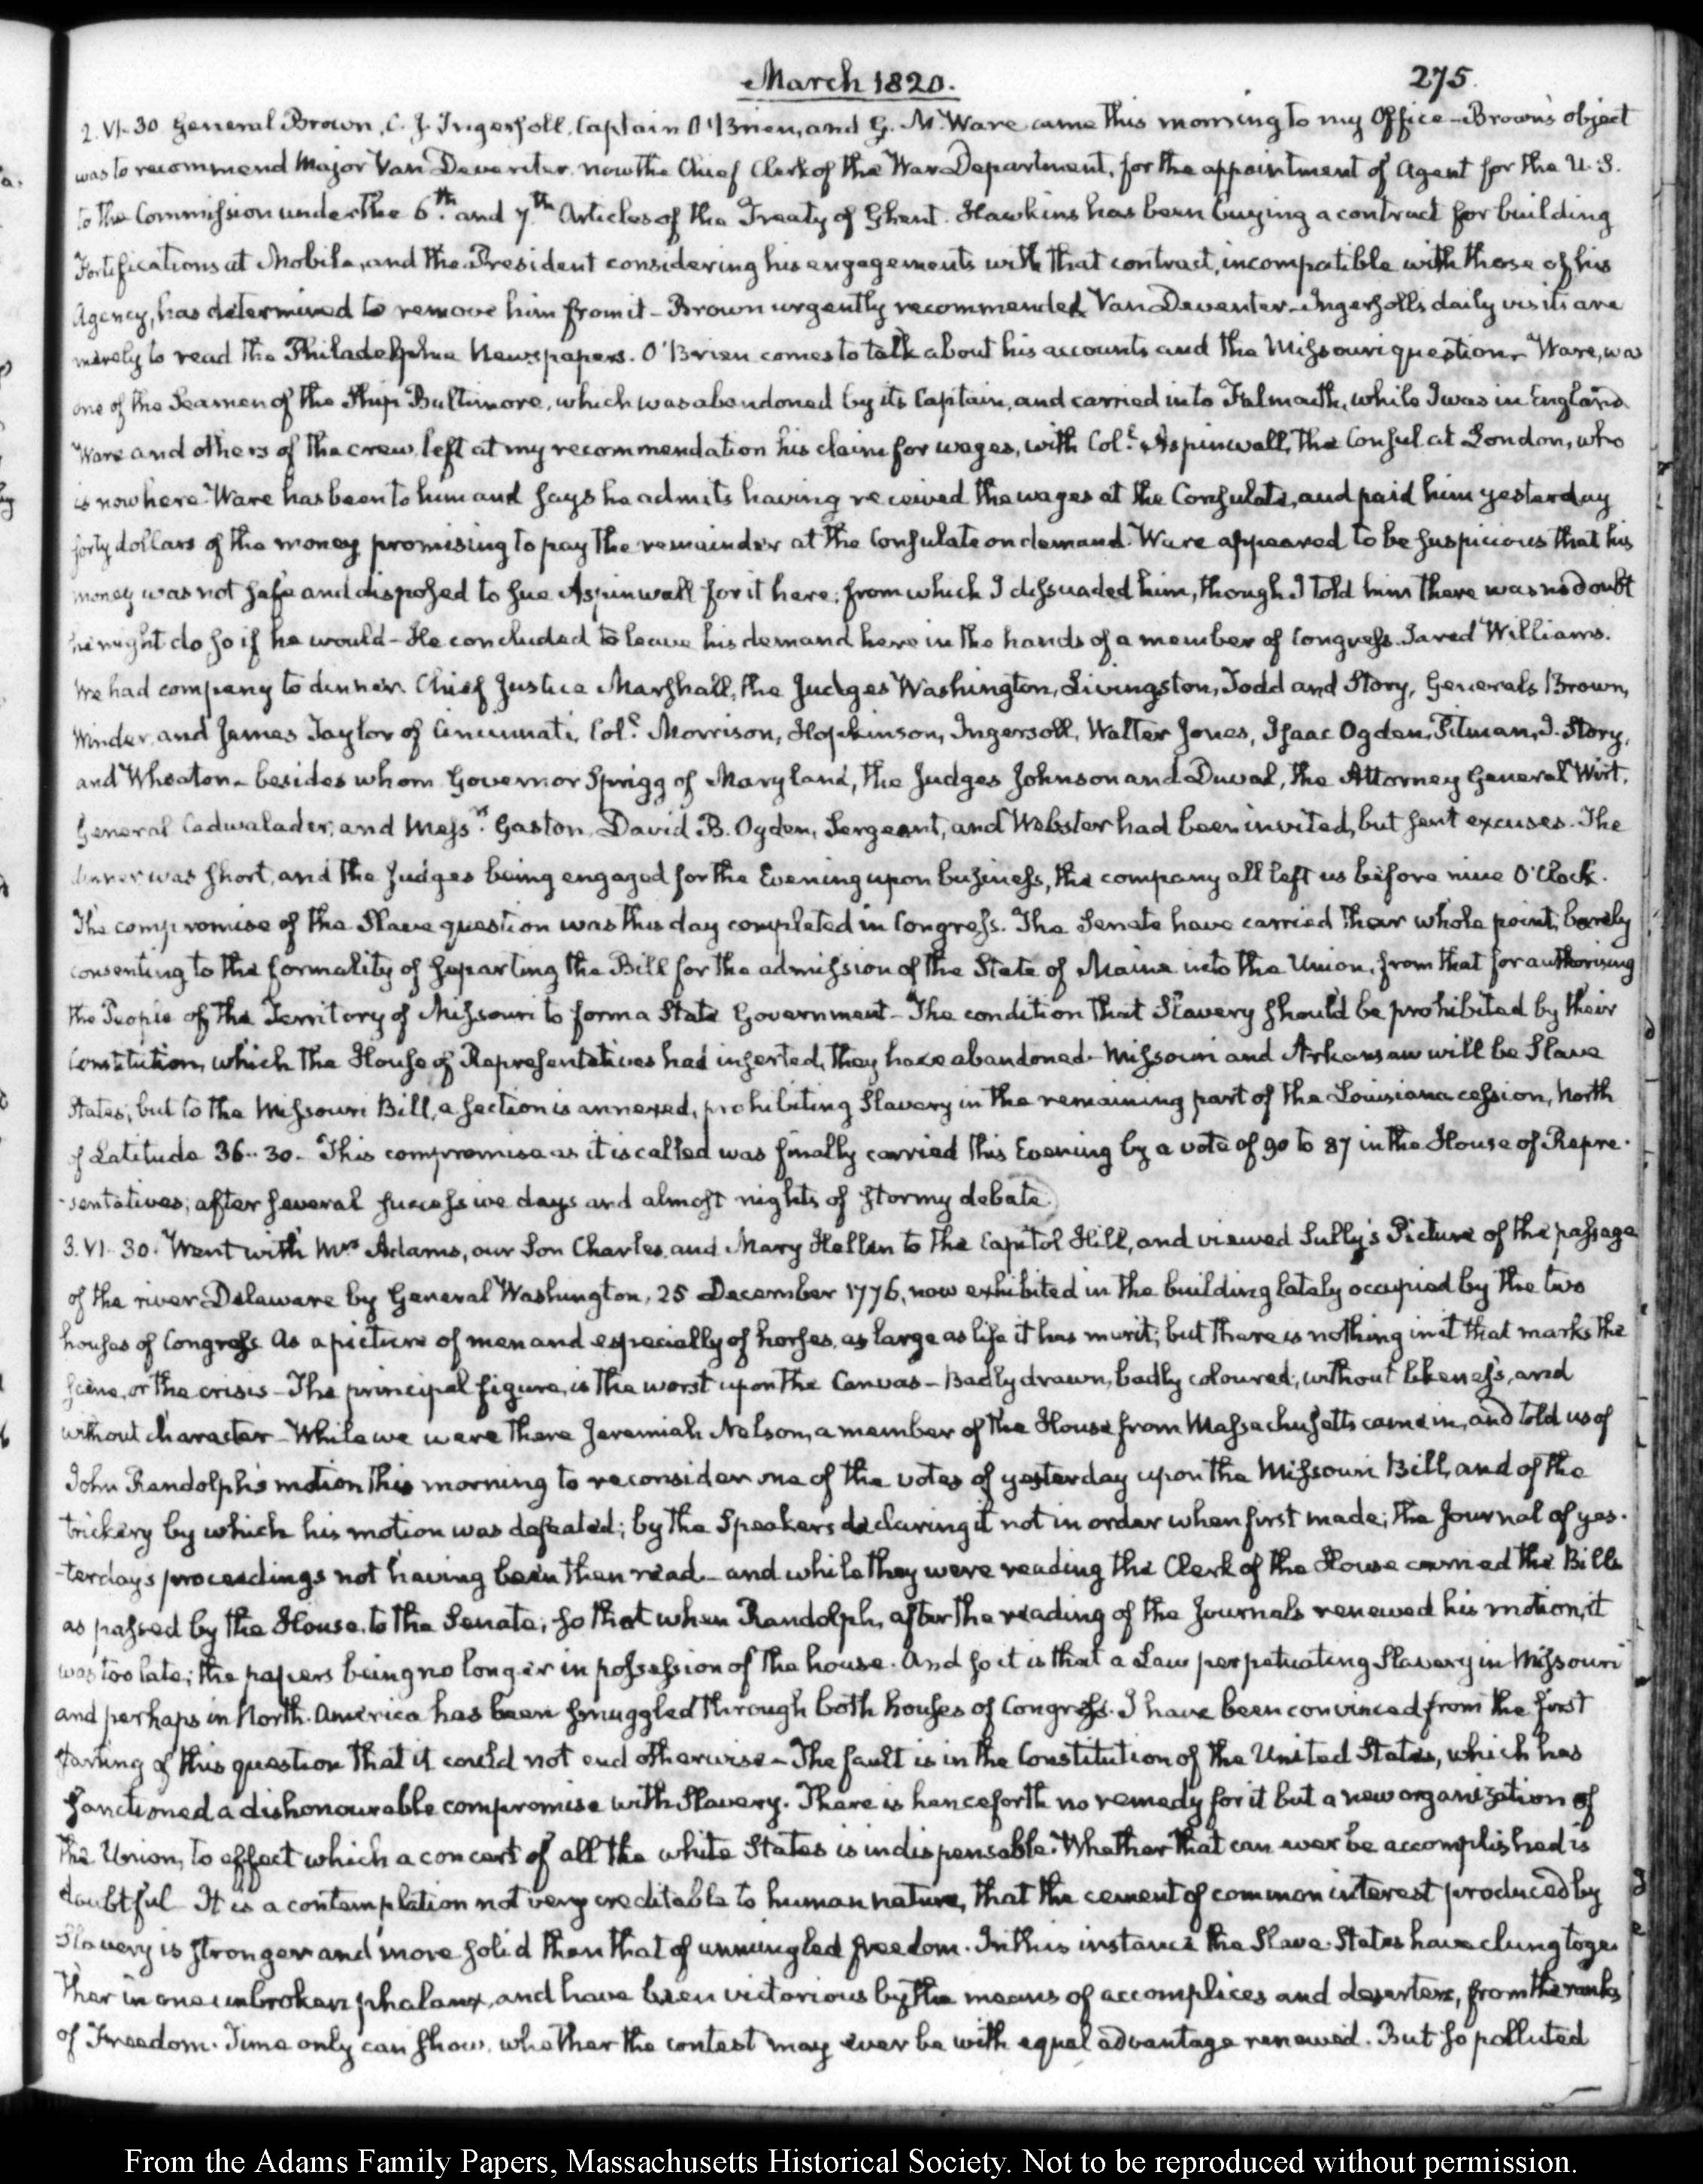 March 1820.
275.
2. VI-30. General Brown, C. J. Ingersoll, Captain O'Brien, and G. M. Ware came this morning to my Office - Brown's object
was to recommend Major Van Deventer now the Chief Clerk of the War Department, for the appointment of Agent for the U.S.
to the Commission under the 6th. and 7th. Articles of the Treaty of Ghent. Hawkins has been buying a contract for building
Fortifications at Mobile, and the President considering his engagements with that contract, incompatible with those of his
Agency, has determined to remove him from it - Brown urgently recommended Van Deventer - Ingersoll's daily visits are
merely to read the Philadelphia Newspapers. O'Brien comes to talk about his accounts and the Missouri question. Ware, was
one of the Seamen of the Ship Baltimore, which was abandoned by its Captain, and carried into Falmouth, while I was in England
Ware and others of the crew left at my recommendation his claim for wages, with Coll. Aspinwall, the Consul at London, who
is now here. Ware has been to him and says he admits having received the wages at the Consulate, and paid him yesterday
forty dollars of the money promising to pay the remainder at the Consulate on demand. Ware appeared to be suspicious that his
money was not safe and disposed to sue Aspinwall for it here; from which I dissuaded him, though I told him there was no doubt
he might do so if he would - He concluded to leave his demand here in the hands of a member of Congress Jared Williams.
We had company to dinner. Chief Justice Marshall, the Judges Washington, Livingston, Todd and Story, Generals Brown,
Winder, and James Taylor of Cincinnati, Coll. Morrison, Hopkinson, Ingersoll, Walter Jones, Isaac Ogden, Pitman, I. Story,
and Wheaton - besides whom Governor Sprigg of Maryland, the Judges Johnson and Duval, the Attorney General Wirt,
General Cadwalader, and Messrs. Gaston, David B. Ogden, Sergeant, and Webster had been invited, but sent excuses. The
dinner was short, and the Judges being engaged for the Evening upon business, the company all left us before nine O'Clock.
The compromise of the Slave question was this day completed in Congress. The Senate have carried their whole point, barely
consenting to the formality of separting the Bill for the admission of the State of Maine into the Union, from that for authorising
the People of the Territory of Missouri to form a State Government - The condition that Slavery should be prohibited by their
Constitution, which the House of Representatives had inserted, they have abandoned. Missouri and Arkansaw will be Slave
States; but to the Missouri Bill, a section is annexed, prohibiting Slavery in the remaining part of the Louisiana cession, North
of Latitude 36..30. This compromise as it is called was finally carried this Evening by a vote of 90 to 87 in the House of Repre-
-sentatives; after several successive days and almost nights of stormy debate.
3. VI-30. Went with Mrs Adams, our Son Charles, and Mary Hellen to the Capitol Hill, and viewed Sully's Picture of the passage
of the river Delaware by General Washington, 25 December 1776, now exhibited in the building lately occupied by the two
houses of Congress. As a picture of men and especially of horses, as large as life it has merit; but there is nothing in it that marks the
scene, or the crisis - The principal figure, is the worst upon the Canvas - Badly drawn, badly coloured, without likeness, and
without character - While we were there Jeremiah Nelson, a member of the House from Massachusetts came in, and told us of
John Randolph's motion this morning to reconsider one of the votes of yesterday upon the Missouri Bill, and of the
trickery by which his motion was defeated; by the Speakers declaring it not in order when first made; the Journal of yes-
-terday's proceedings not having been then read - and while they were reading the Clerk of the House carried the Bills
as passed by the House, to the Senate, so that when Randolph, after the reading of the Journals renewed his motion, it
was too late; the papers being no longer in possession of the house. And so it is that a Law perpetuating Slavery in Missouri
and perhaps in North-America has been smuggled through both houses of Congress. I have been convinced from the first
starting of this question that it could not end otherwise - The fault is in the Constitution of the United States, which has
sanctioned a dishonourable compromise with Slavery. There is henceforth no remedy for it but a new organization of
the Union, to effect which a concert of all the white States is indispensable. Whether that can ever be accomplished is
doubtful - It is a contemplation not very creditable to human nature, that the cement of common interest produced by
Slavery is stronger and more solid than that of unmingled freedom. In this instance the Slave States have clung toge-
ther in one unbroken phalanx, and have been victorious by the means of accomplices and deserters, from the ranks
of Freedom. Time only can show, whether the contest may ever be with equal advantage renewed. But so polluted
From the Adams Family Papers, Massachusetts Historical Society. Not to be reproduced without permission.